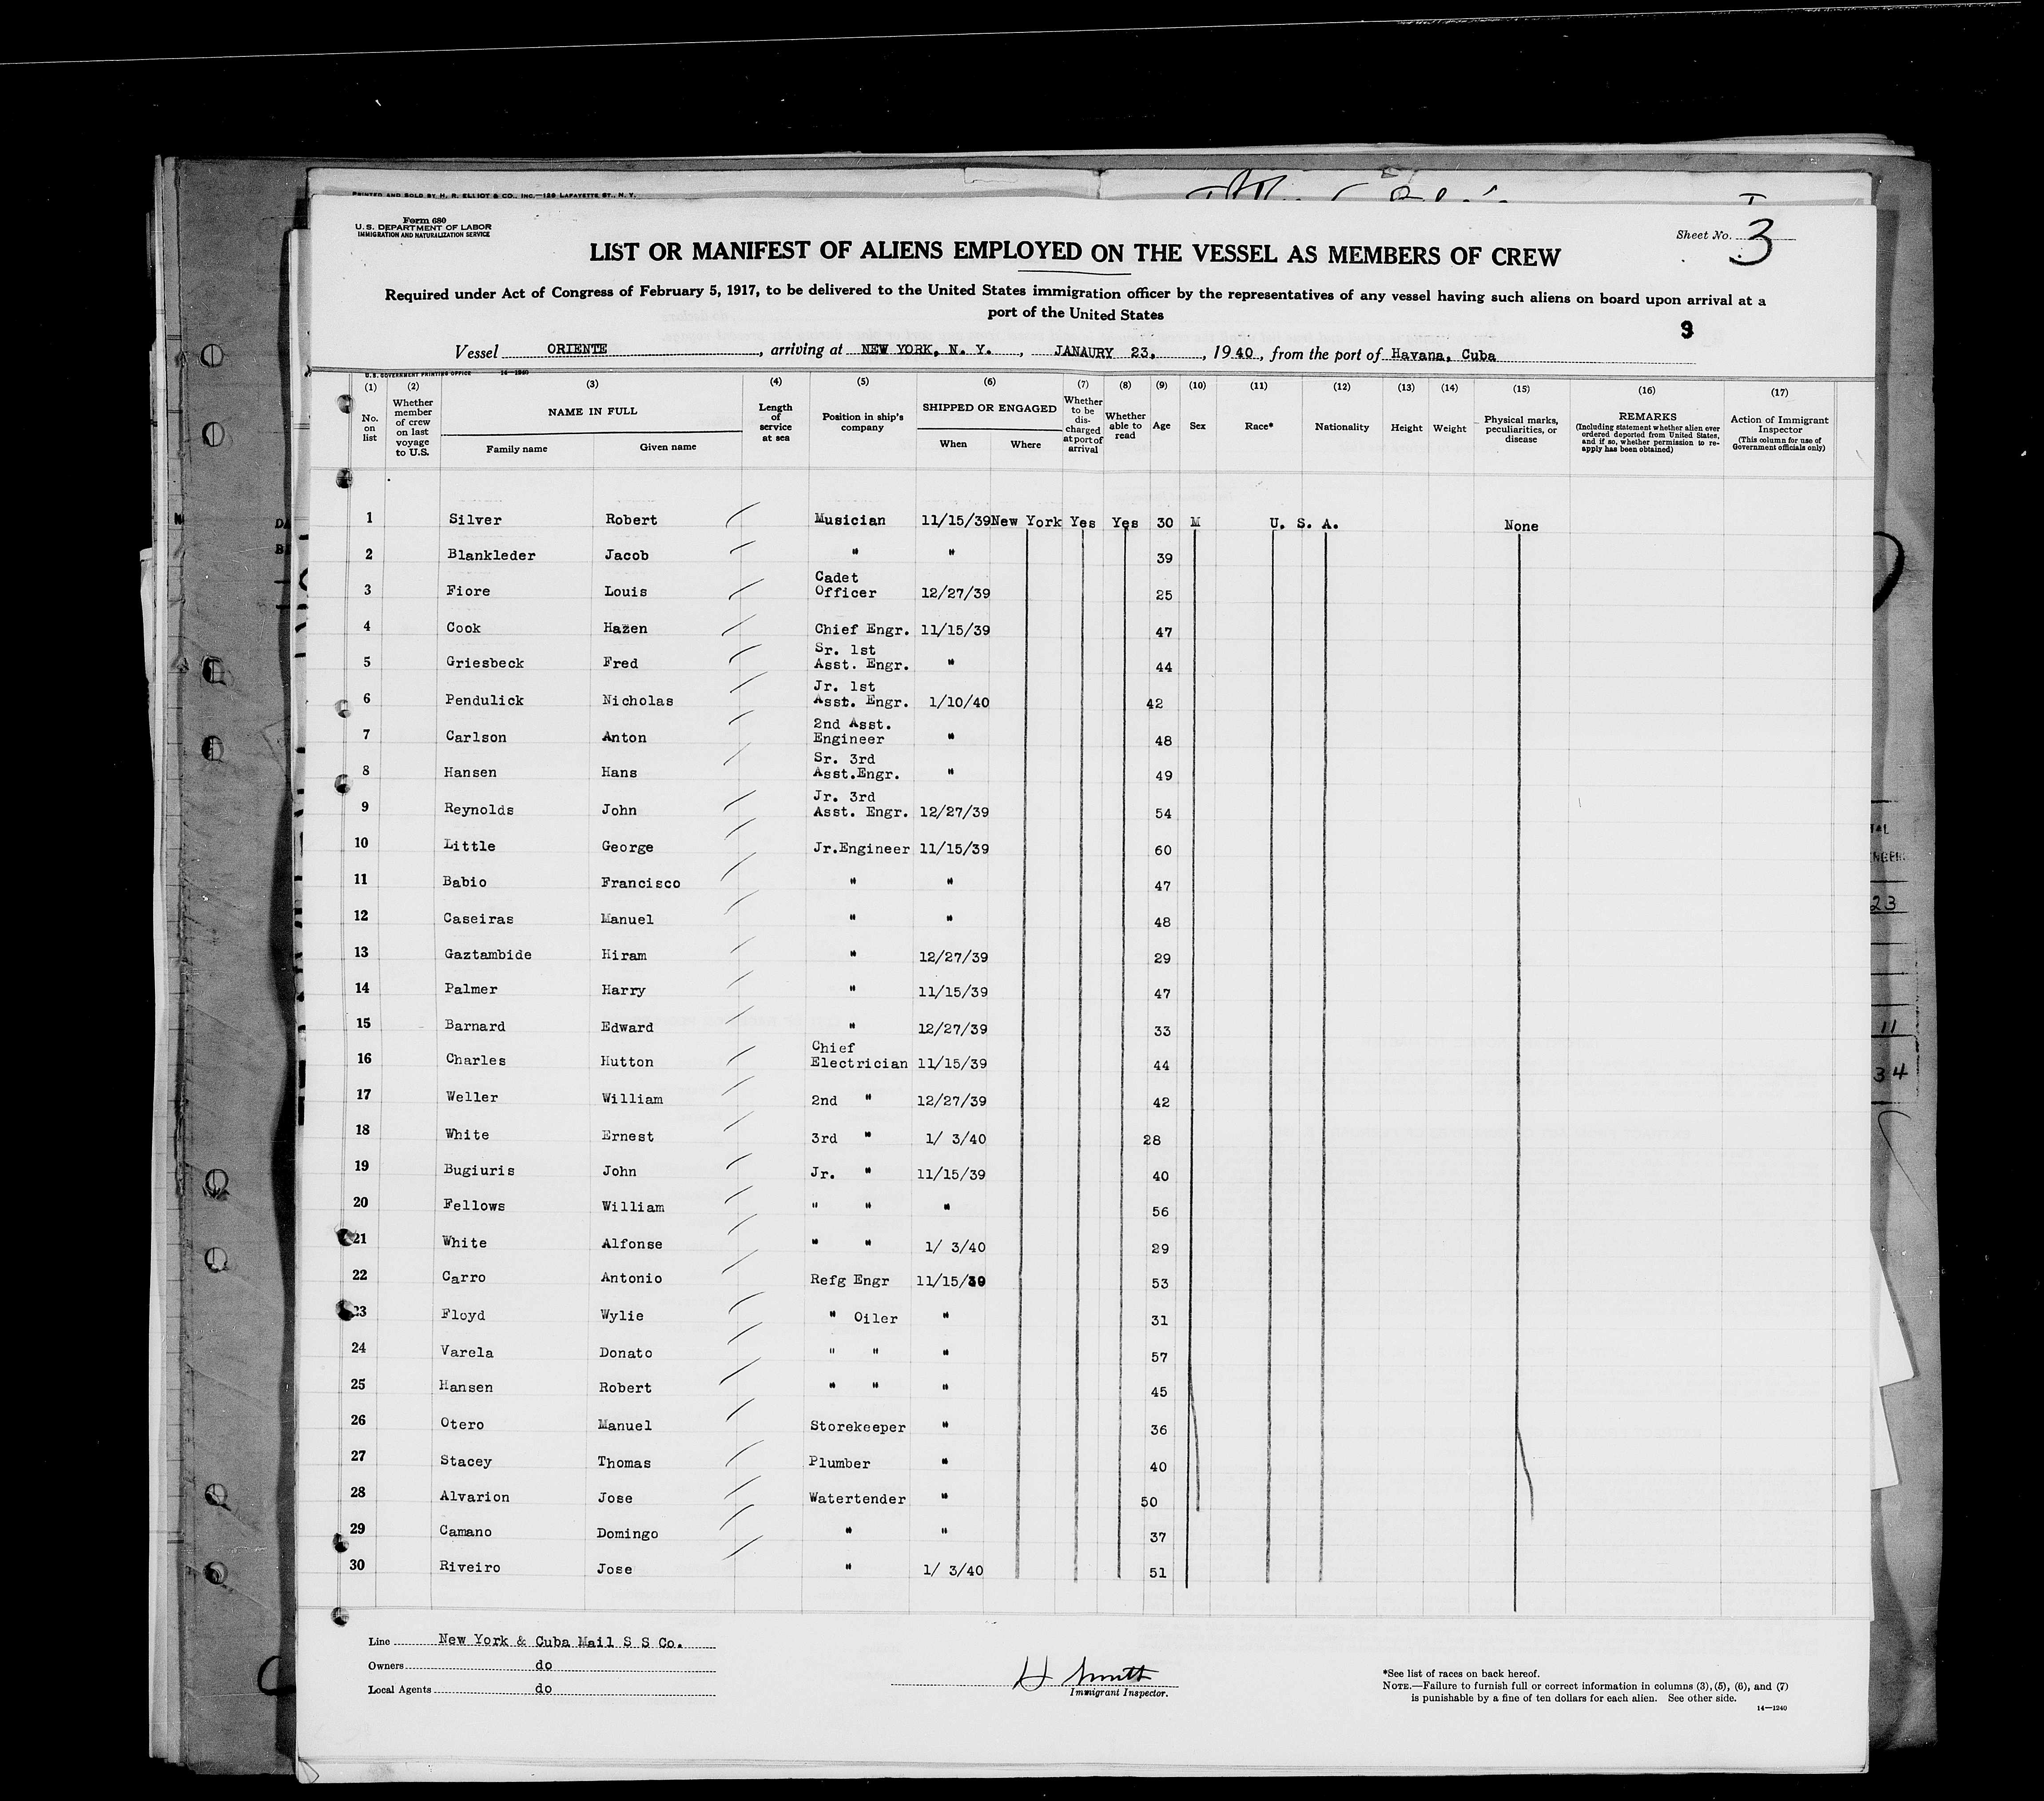 PRINTED AND SOLD BY H. R. ELLIOT & CO., INC.—129 LAFAYETTE ST., N. Y.
Form 680
U. S. DEPARTMENT OF LABOR
IMMIGRATION AND NATURALIZATION SERVICE
Sheet No. 3
LIST OR MANIFEST OF ALIENS EMPLOYED ON THE VESSEL AS MEMBERS OF CREW
Required under Act of Congress of February 5, 1917, to be delivered to the United States immigration officer by the representatives of any vessel having such aliens on board upon arrival at a
port of the United States
3
Vessel ORIENTE, arriving at NEW YORK, N. Y., JANAURY 23, 1940, from the port of Havana, Cuba
U. S. GOVERNMENT PRINTING OFFICE 14—1240
(1) (2) (3) (4) (5) (6) (7) (8) (9) (10) (11) (12) (13) (14) (15) (16) (17)
No. on list
Whether member of crew on last voyage to U.S.
NAME IN FULL
Family name
Given name
Length of service at sea
Position in ship's company
SHIPPED OR ENGAGED
When
Where
Whether to be discharged at port of arrival
Whether able to read
Age
Sex
Race*
Nationality
Height
Weight
Physical marks, peculiarities, or disease
REMARKS
(Including statement whether alien ever ordered deported from United States, and if so, whether permission to re-apply has been obtained)
Action of Immigrant Inspector
(This column for use of Government officials only)
1 Silver Robert Musician 11/15/39 New York Yes Yes 30 M U. S. A. None
2 Blankleder Jacob " " 39
3 Fiore Louis Cadet Officer 12/27/39 25
4 Cook Hazen Chief Engr. 11/15/39 47
5 Griesbeck Fred Sr. 1st Asst. Engr. " 44
6 Pendulick Nicholas Jr. 1st Asst. Engr. 1/10/40 42
7 Carlson Anton 2nd Asst. Engineer " 48
8 Hansen Hans Sr. 3rd Asst.Engr. " 49
9 Reynolds John Jr. 3rd Asst. Engr. 12/27/39 54
10 Little George Jr.Engineer 11/15/39 60
11 Babio Francisco " " 47
12 Caseiras Manuel " " 48
13 Gaztambide Hiram " 12/27/39 29
14 Palmer Harry " 11/15/39 47
15 Barnard Edward " 12/27/39 33
16 Charles Hutton Chief Electrician 11/15/39 44
17 Weller William 2nd " 12/27/39 42
18 White Ernest 3rd " 1/ 3/40 28
19 Bugiuris John Jr. " 11/15/39 40
20 Fellows William " " " 56
21 White Alfonse " " 1/ 3/40 29
22 Carro Antonio Refg Engr 11/15/39 53
23 Floyd Wylie " Oiler " 31
24 Varela Donato " " " 57
25 Hansen Robert " " " 45
26 Otero Manuel Storekeeper " 36
27 Stacey Thomas Plumber " 40
28 Alvarion Jose Watertender " 50
29 Camano Domingo " " 37
30 Riveiro Jose " 1/ 3/40 51
Line New York & Cuba Mail S S Co.
Owners do
Local Agents do
H Smith
Immigrant Inspector.
*See list of races on back hereof.
NOTE.—Failure to furnish full or correct information in columns (3), (5), (6), and (7)
is punishable by a fine of ten dollars for each alien. See other side.
14—1240
23
11
34